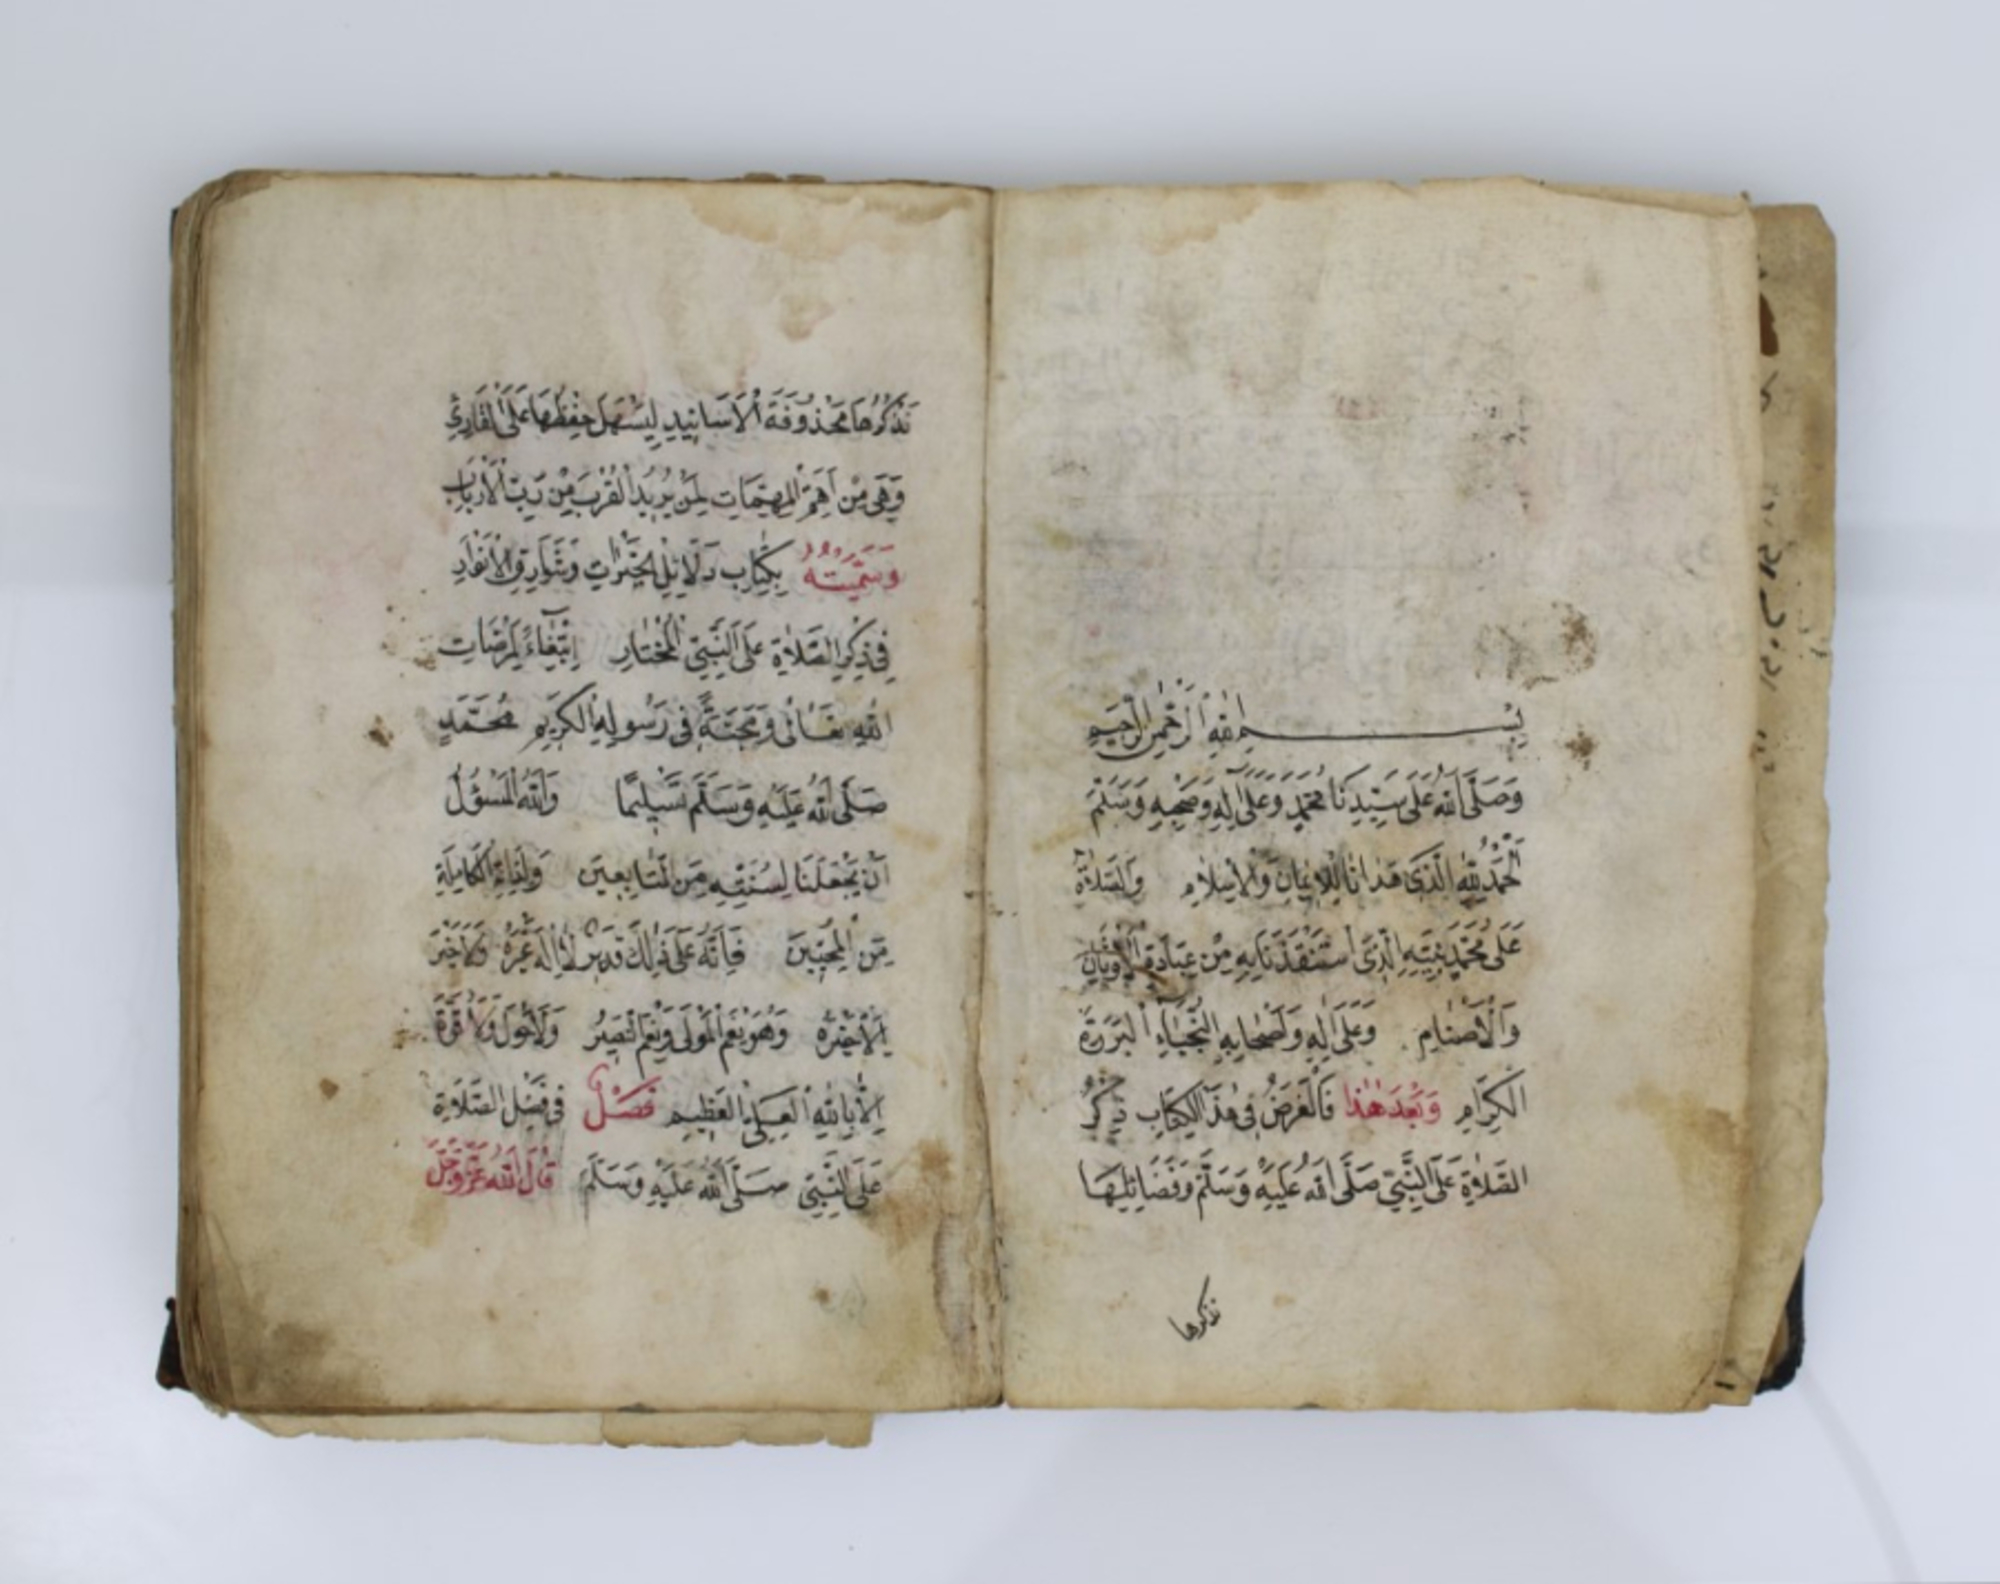 بِسْــــــمِ اللهِ الرَّحْمٰنِ الرَّحِيمِ
وَصَلَّى اللهُ عَلَى سَيِّدِنَا مُحَمَّدٍ وَعَلَى اٰلِهِ وَصَحْبِهِ وَسَلَّمَ
اَلْحَمْدُ لِلّٰهِ الَّذِى هَدَانَا لِلْاِيمَانِ وَالْاِسْلَامِ وَالصَّلٰوةُ
عَلَى مُحَمَّدٍ نَبِيِّهِ الَّذِى اسْتَنْقَذَنَا بِهِ مِنْ عِبَادَةِ الْاَوْثَانِ
وَالْاَصْنَامِ وَعَلَى اٰلِهِ وَاَصْحَابِهِ النُّجَبَاءِ الْبَرَرَةِ
الْكِرَامِ وَبَعْدَ هٰذَا فَالْغَرَضُ فِى هٰذَا الْكِتَابِ ذِكْرُ
الصَّلٰوةِ عَلَى النَّبِيِّ صَلَّى اللهُ عَلَيْهِ وَسَلَّمَ وَفَضَائِلِهَا
نذكرها
نَذْكُرُهَا مَحْذُوفَةَ الْاَسَانِيدِ لِيَسْهُلَ حِفْظُهَا عَلَى الْقَارِئِ
وَهِىَ مِنْ اَهَمِّ الْمُهِمَّاتِ لِمَنْ يُرِيدُ الْقُرْبَ مِنْ رَبِّ الْاَرْبَابِ
وَسَمَّيْتُهُ بِكِتَابِ دَلَائِلِ الْخَيْرَاتِ وَشَوَارِقِ الْاَنْوَارِ
فِى ذِكْرِ الصَّلَاةِ عَلَى النَّبِيِّ الْمُخْتَارِ اِبْتِغَاءً لِمَرْضَاتِ
اللهِ تَعَالٰى وَمَحَبَّةً فِى رَسُولِهِ الْكَرِيمِ مُحَمَّدٍ
صَلَّى اللهُ عَلَيْهِ وَسَلَّمَ تَسْلِيمًا وَاللهُ الْمَسْؤُلُ
اَنْ يَجْعَلَنَا لِسُنَّتِهِ مِنَ التَّابِعِينَ وَلِذَاتِهِ الْكَامِلَةِ
مِنَ الْمُحِبِّينَ فَاِنَّهُ عَلَى ذٰلِكَ قَدِيرٌ لَا اِلٰهَ غَيْرُهُ وَلَا خَيْرَ
اِلَّا خَيْرُهُ وَهُوَ نِعْمَ الْمَوْلَى وَنِعْمَ النَّصِيرُ وَلَا حَوْلَ وَلَا قُوَّةَ
اِلَّا بِاللهِ الْعَلِيِّ الْعَظِيمِ فَصْلٌ فِى فَضْلِ الصَّلَاةِ
عَلَى النَّبِيِّ صَلَّى اللهُ عَلَيْهِ وَسَلَّمَ قَالَ اللهُ عَزَّ وَجَلَّ